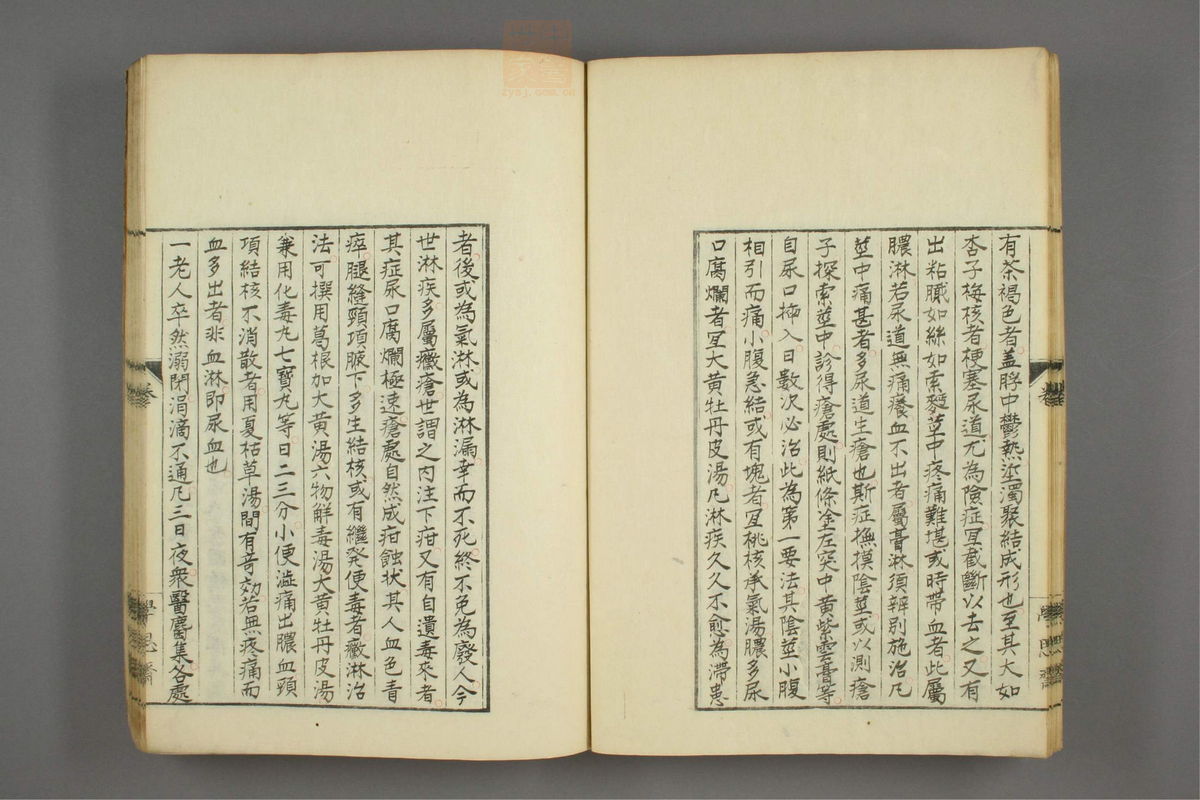 有茶褐色者蓋脬中鬱熱垽濁聚結成形也至其大如
杏子梅核者梗塞尿道尤為險症宜截斷以去之又有
出粘膩如絲如索麪莖中疼痛難堪或時帶血者此屬
膿淋若尿道無痛癢血不出者屬膏淋須辨別施治凡
莖中痛甚者多尿道生瘡也斯症撫摸陰莖或以測瘡
子探索莖中診得瘡處則紙條塗左突中黃紫雲膏等
自尿口插入日數次必治此為第一要法其陰莖小腹
相引而痛小腹急結或有塊者宜桃核承氣湯膿多尿
口腐爛者宜大黃牡丹皮湯凡淋疾久久不愈為滯患
者後或為氣淋或為淋漏幸而不死終不免為廢人今
世淋疾多屬黴瘡世謂之內注下疳又有自遺毒來者
其症尿口腐爛極速瘡處自然成疳蝕狀其人血色青
瘁腿縫頸項腋下多生結核或有繼発便毒者黴淋治
法可撰用葛根加大黃湯六物解毒湯大黃牡丹皮湯
兼用化毒丸七寶丸等日二三分小便澁痛出膿血頸
項結核不消散者用夏枯草湯間有奇効若無疼痛而
血多出者非血淋即尿血也
一老人卒然溺閉涓滴不通凡三日夜衆醫麕集各處
卷
學思齋
中醫
家
zysj.com.cn